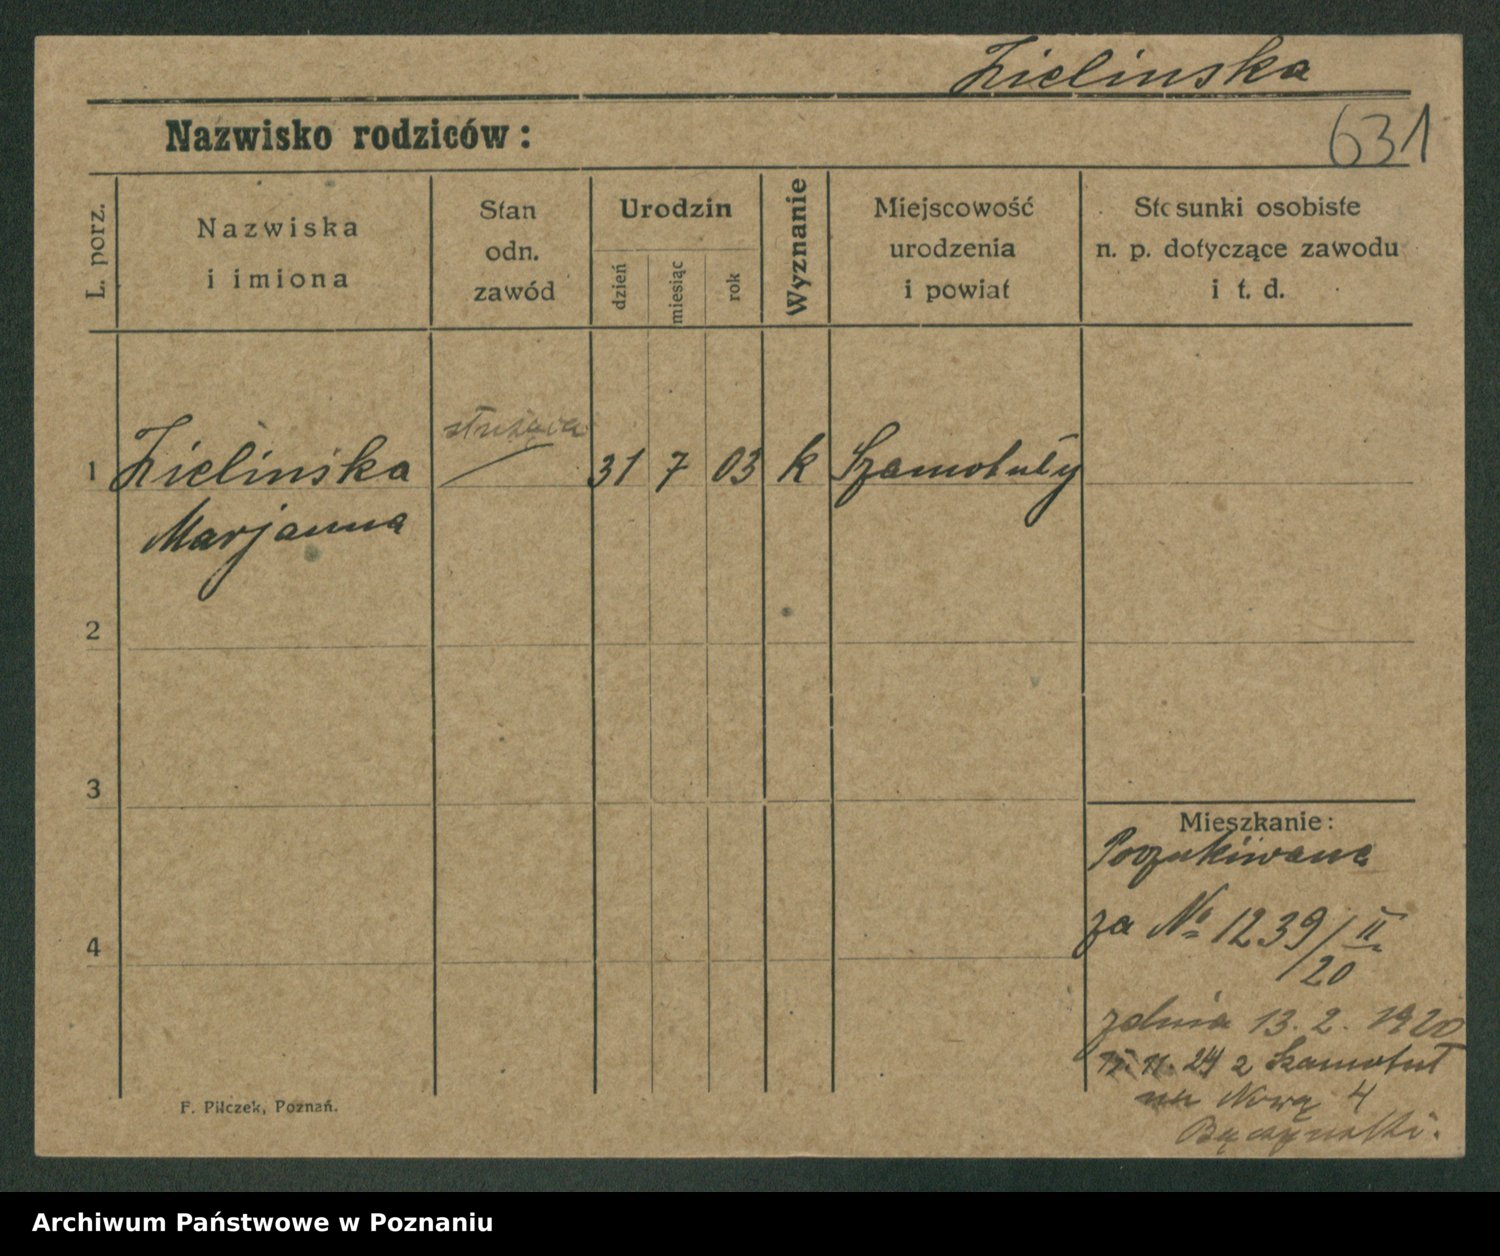 Zielinska
Nazwisko rodziców:
631
L. porz.
Nazwiska
i imiona
Stan
odn.
zawód
Urodzin
dzień
miesiąc
rok
Wyznanie
Miejscowość
urodzenia
i powiat
Stosunki osobiste
n. p. dotyczące zawodu
i t. d.
służąca
1 Zielinska 31 7 03 k Szamotuły
Marjanna
2
3
Mieszkanie:
Poszukiwana
4
za № 1239/II
20
z dnia 13. 2. 1920
11. 24 z Szamotuł
na Nową 4
F. Pilczek, Poznań.
Archiwum Państwowe w Poznaniu